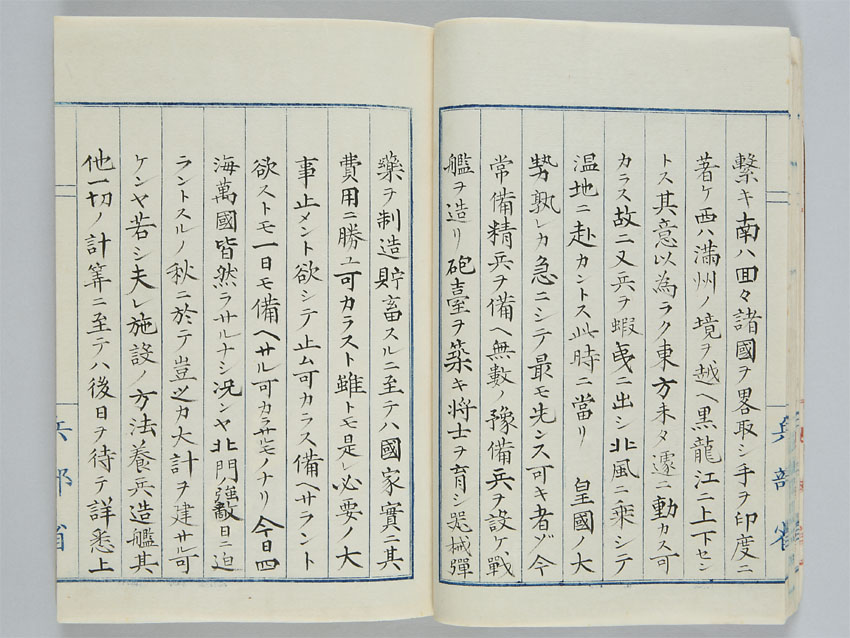 繋キ南ハ回々諸國ヲ畧取シ手ヲ印度ニ
著ケ西ハ滿州ノ境ヲ越ヘ黒龍江ニ上下セン
トス其意以為ラク東方未タ遽ニ動カス可
カラス故ニ又兵ヲ蝦夷ニ出シ北風ニ乘シテ
温地ニ赴カントス此時ニ當リ 皇國ノ大
勢孰レカ急ニシテ最モ先ンス可キ者ゾ今
常備精兵ヲ備ヘ無數ノ豫備兵ヲ設ケ戰
艦ヲ造リ砲臺ヲ築キ将士ヲ育シ器械彈
兵部省
藥ヲ制造貯畜スルニ至テハ國家實ニ其
費用ニ勝ユ可カラスト雖トモ是レ必要ノ大
事止メント欲シテ止ム可カラス備ヘサラント
欲ストモ一日モ備ヘサル可カラサルモノナリ今日四
海萬國皆然ラサルナシ況ンヤ北門強敵日ニ迫
ラントスルノ秋ニ於テ豈之カ大計ヲ建サル可
ケンヤ若シ夫レ施設ノ方法養兵造艦其
他一切ノ計筭ニ至テハ後日ヲ待テ詳悉上
兵部省